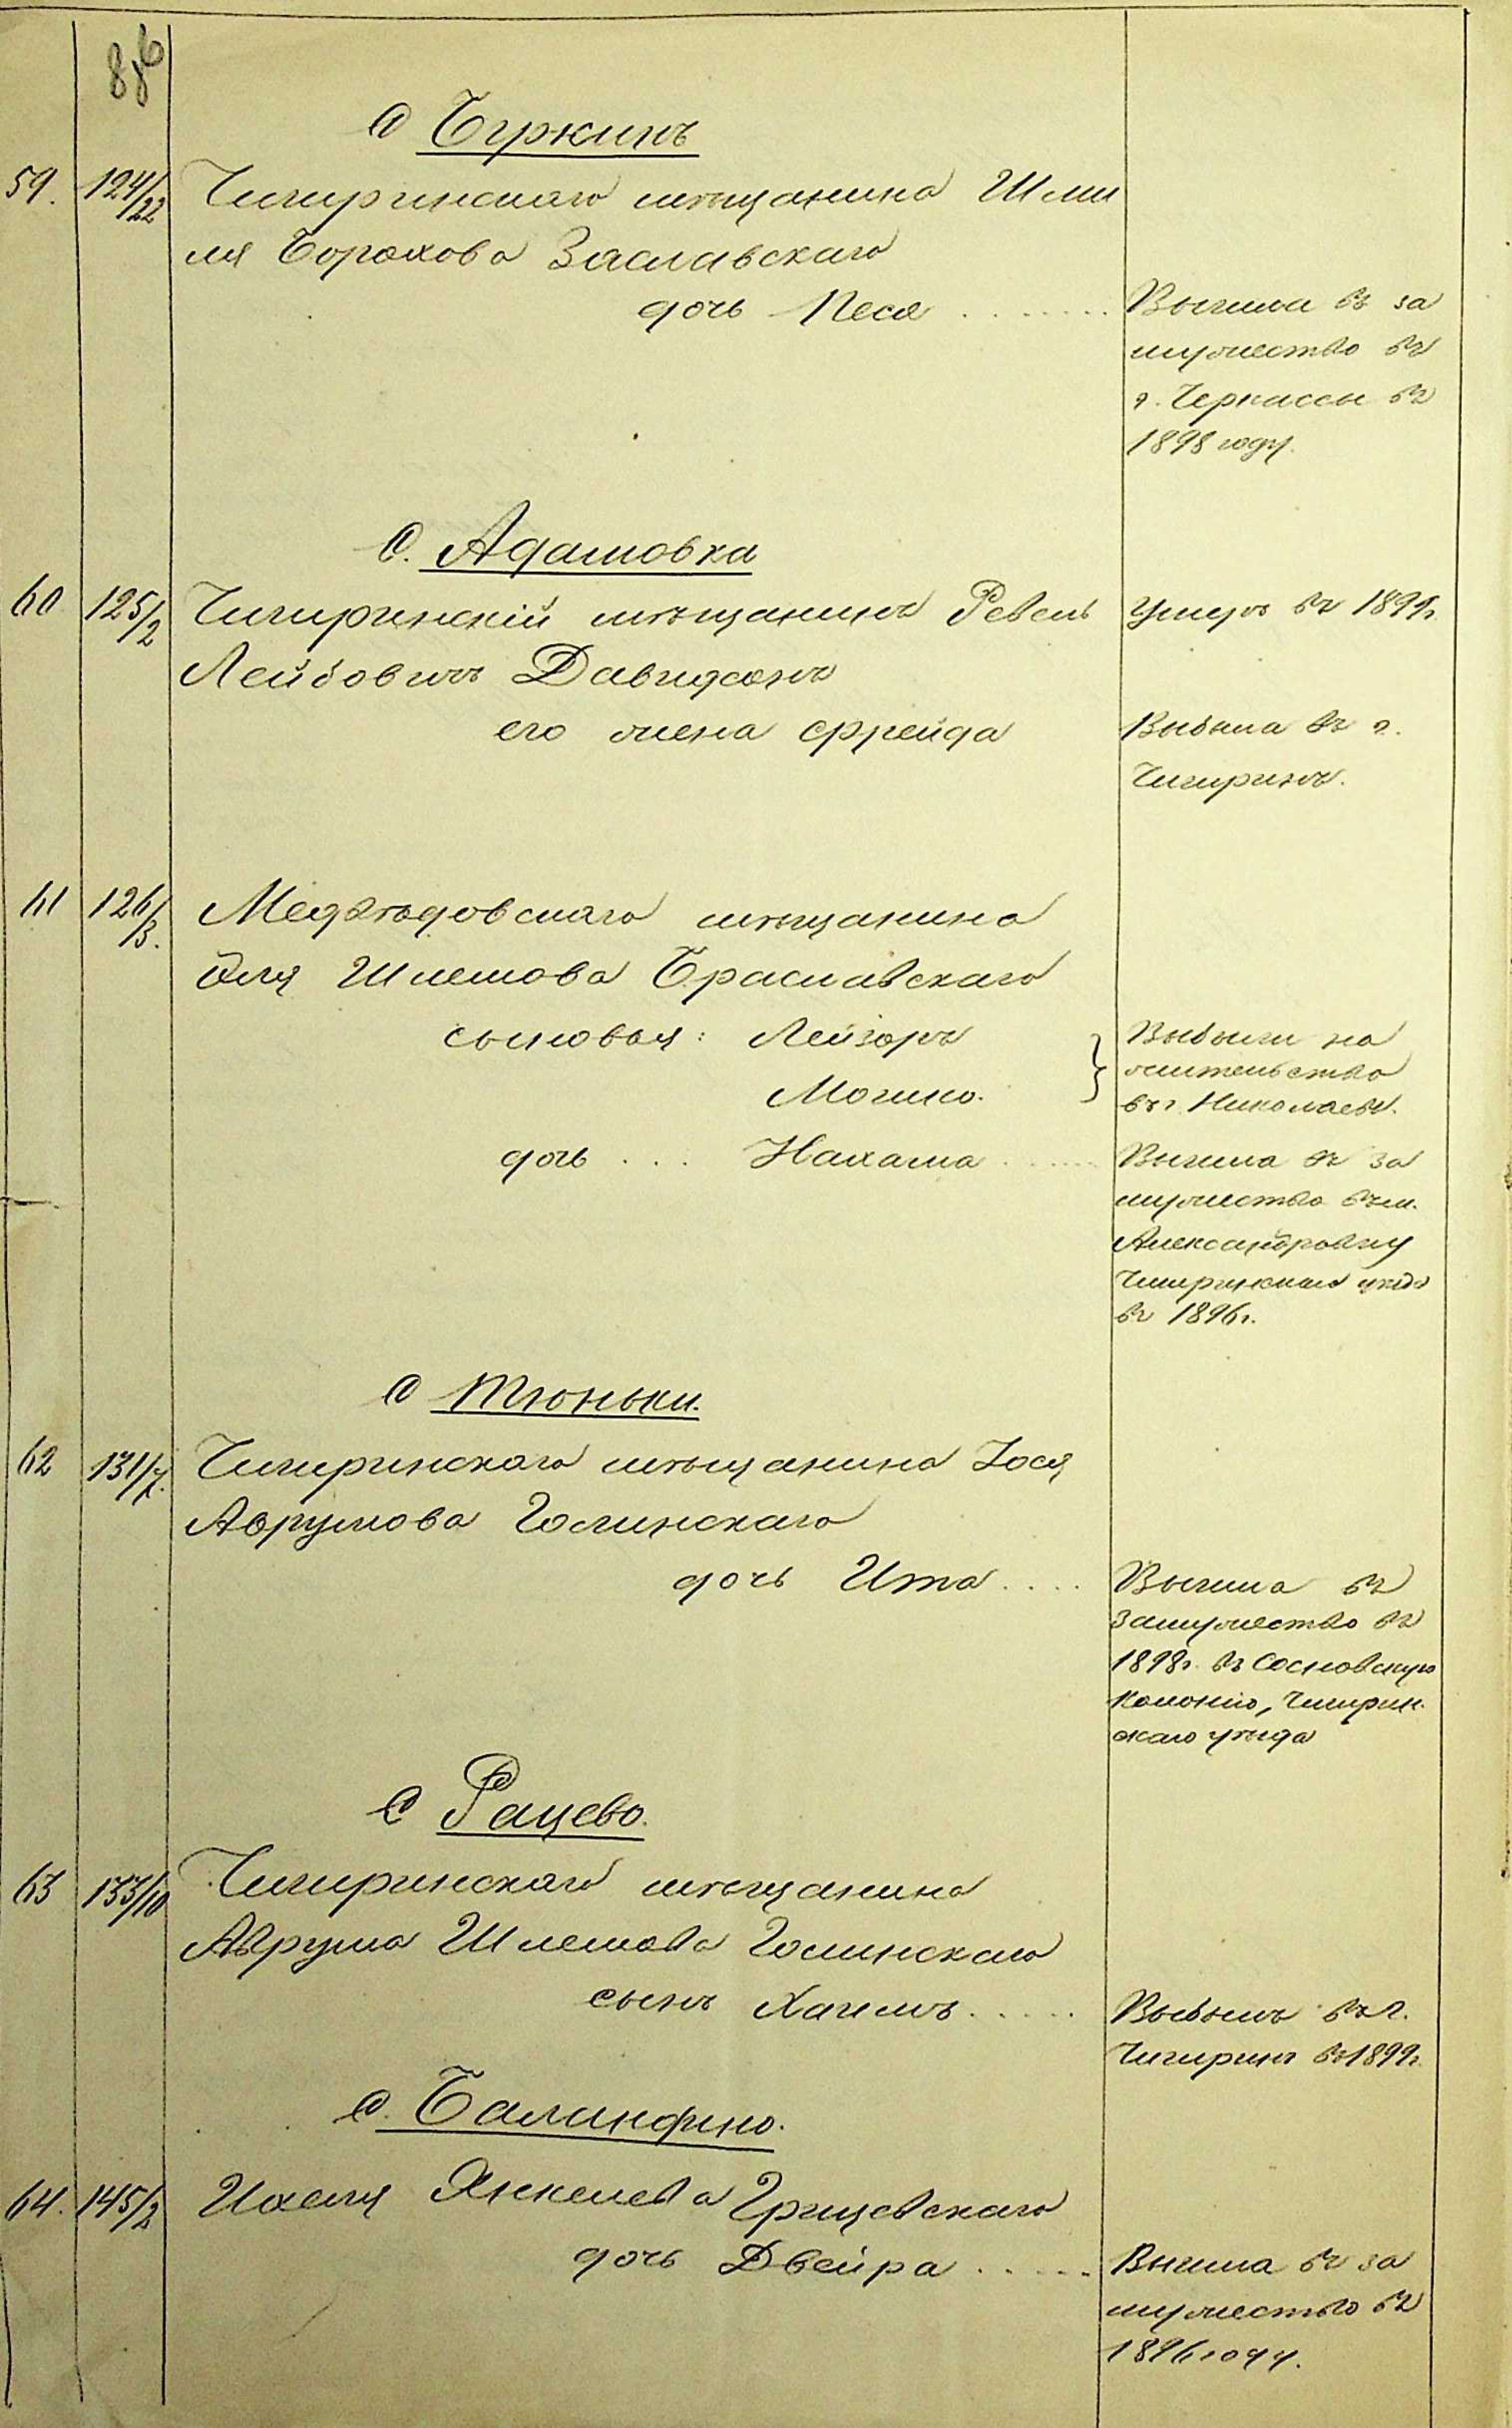 886
с Буркинъ
59. 124/22 Чигиринскаго мѣщанина Шми
ля Борохова Заславскаго
дочь Песя ....... Вышла въ за
мужество въ
г. Черкассы въ
1898 году.
С. Адамовка
60 125/2 Чигиринскій мѣщанинъ Ревель Умеръ въ 1899г.
Лейбовичъ Давидсонъ
его жена Фрейда Выбыла въ г.
Чигиринъ.
61 126/3. Медвѣдовскаго мѣщанина
Эля Шлемова Браславскаго
сыновья: Лейзоръ } Выбыли на
жительство
Мошко. въ г. Николаевъ.
дочь ... Нахама ..... Вышла въ за
мужество въ м.
Александровку
Чигиринскаго уѣзда
въ 1896г.
с Тюньки.
62 131/7. Чигиринскаго мѣщанина Іося
Аврумова Голинскаго
дочь Ита .... Вышла въ
замужество въ
1898г. въ Сосновскую
колонію, Чигирин-
скаго уѣзда
с Рацево.
63 133/10 Чигиринскаго мѣщанина
Аврума Шлемова Голинскаго
сынъ Хаимъ ..... Выбылъ въ г.
Чигиринъ въ 1899г.
с. Баландино.
64. 145/2 Ихеля Янкелева Грищевскаго
дочь Двейра ..... Вышла въ за
мужество въ
1896 году.